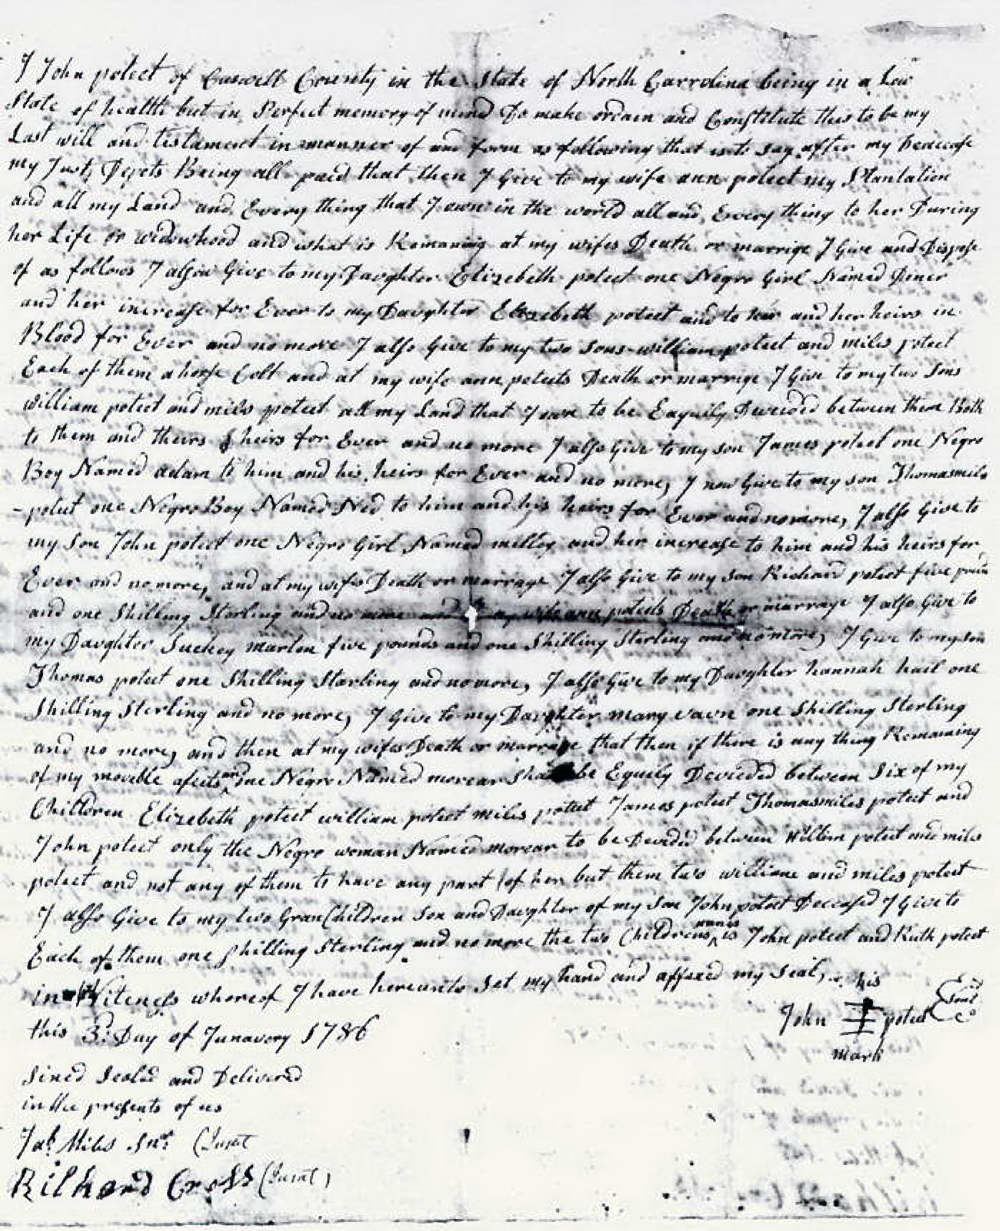 I John poteet of Caswell County in the State of North Carrolina being in a Low
State of health but in Perfect memory of mind Do make ordain and Constitute this to be my
Last will and testament in manner of and form as following that is to say after my Deacease
my Just Depets Being all paid that then I Give to my wife ann poteet my Plantation
and all my Land and Every thing that I own in the world all and Every thing to her During
her Life or widowhood and what is Remaning at my wifes Death or marrige I Give and Dispose
of as follows I allsow Give to my Daughter Elizebeth poteet one Negro Girl Named Diner
and her increase for Ever to my Daughter Elizebeth poteet and to her and her heirs in
Blood for Ever and no more I allso Give to my two Sons william poteet and miles poteet
Each of them a horse Colt and at my wife ann poteets Death or marrige I Give to my two Sons
william poteet and miles poteet all my Land that I own to be Equily Devided between them Both
to them and theirs heirs for Ever and no more I allso Give to my son James poteet one Negro
Boy Named adam to him and his heirs for Ever and no more, I now Give to my son Thomasmiles
-poteet one Negro Boy Named Ned to him and his heirs for Ever and no more, I allso Give to
my Son John poteet one Negro Girl Named milley and her increase to him and his heirs for
Ever and no more, and at my wifes Death or marrage I allso Give to my son Richard poteet five
and one Shilling Starling and no more and at my wife ann poteets Death or marriage I also Give to
my Daughter Suckey marten five pounds and one Shilling Starling and no more, I Give to my son
Thomas poteet one Shilling Starling and no more, I allso Give to my Daughter hannah hail one
Shilling Sterling and no more, I Give to my Daughter mary vawn one Shilling Sterling
and no more, and then at my wifes Death or marrage that then if there is any thing Remaining
of my movible afects and one Negro Named morear Shall be Equily Devided between Six of my
Children Elizebeth poteet william poteet miles poteet James poteet Thomasmiles poteet and
John poteet only the Negro woman Named morear to be Devided between William poteet and miles
poteet and not any of them to have any part of her but them two william and miles poteet
I allso Give to my two GranChildren Son and Daughter of my Son John poteet Deceased I Give to
Each of them one Shilling Sterling and no more the two Childrens names is John poteet and Ruth poteet
in Witeness whareof I have hereunto Set my hand and affexed my Seal, his
this 3d Day of Junavery 1786
John poteet Seal
mark
Sined Sealed and Delivered
in the presents of us
Jab Miles Snr (Jurat
Richard Cross (Jurat)